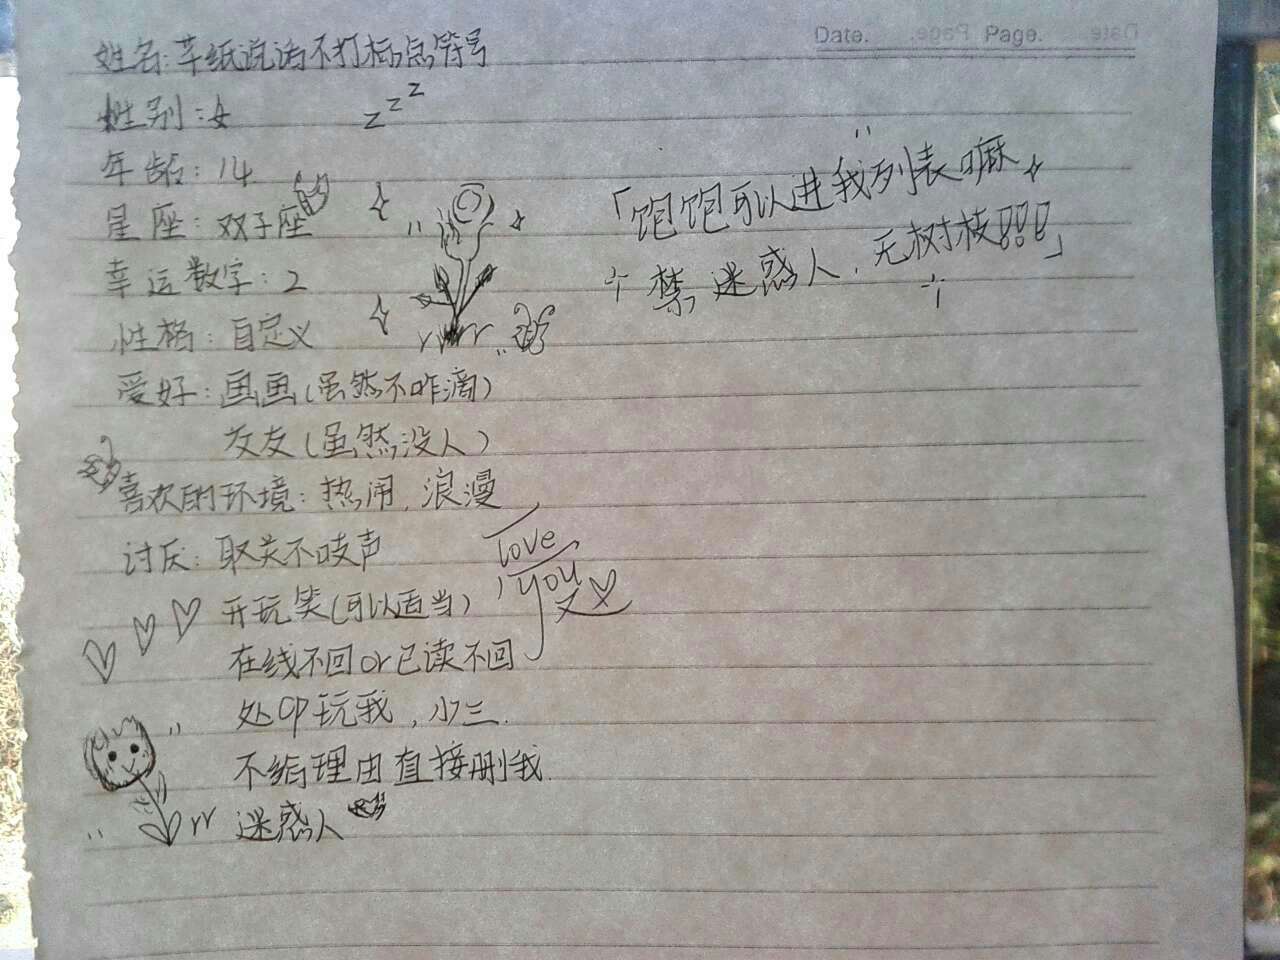 Date. Page.
姓名:草纸说话不打标点符号
性别:女
zzz
年龄:14
星座:双子座
幸运数字:2
性格:自定义
爱好:画画(虽然不咋滴)
交友(虽然没人)
喜欢的环境:热闹,浪漫
讨厌:取关不吱声
开玩笑(可以适当)
在线不回or已读不回
处CP玩我,小三.
不给理由直接删我.
迷惑人
「饱饱可以进我列表嘛
禁迷惑人,无树枝!!!」
love
you